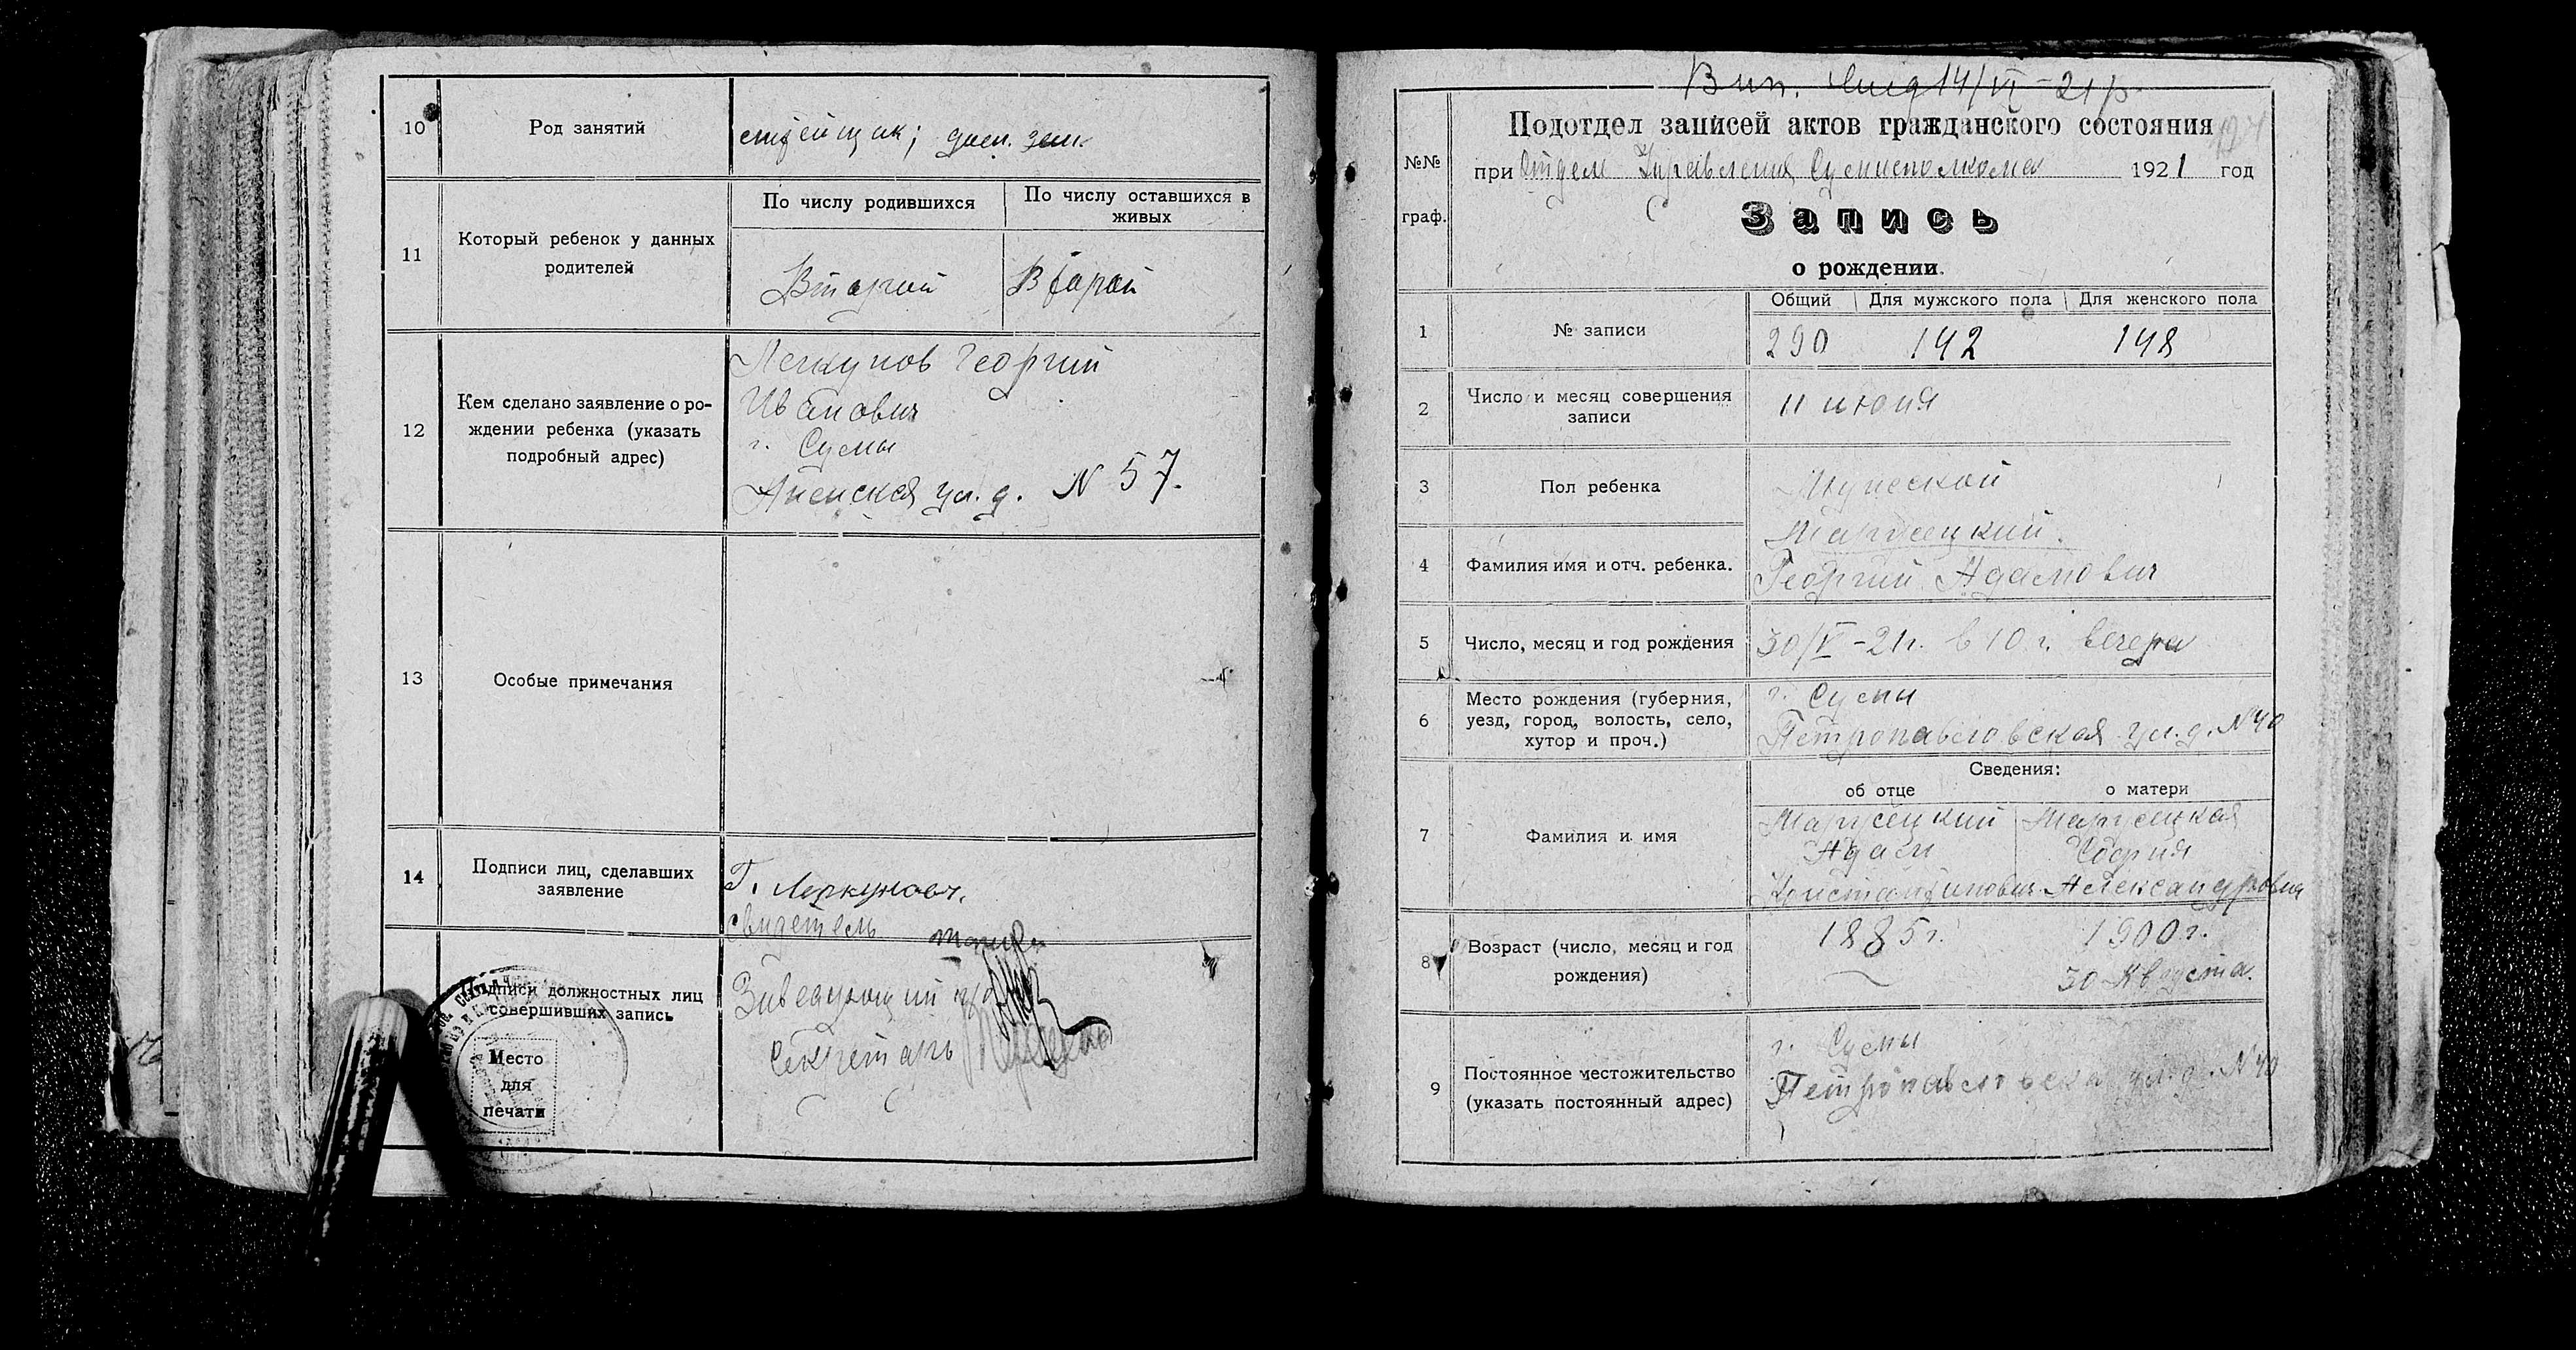 10
Род занятий
дом. зан.
11
Который ребенок у данных
родителей
По числу родившихся
По числу оставшихся в
живых
Второй
Второй
12
Кем сделано заявление о ро-
ждении ребенка (указать
подробный адрес)
Георгий
Иванович
г. Сумы
ул. д. № 57.
13
Особые примечания
14
Подписи лиц, сделавших
заявление
Г.
свидетель
Подписи должностных лиц
совершивших запись
Место
для
печати
Заведующий п/о
Секретарь
14/VI-21
№№
граф.
Подотдел записей актов гражданского состояния
при Отделе Управления Сумисполкома 1921 год
Запись
о рождении.
1
№ записи
Общий
Для мужского пола
Для женского пола
290
142
148
2
Число и месяц совершения
записи
11 июня
3
Пол ребенка
Мужской
4
Фамилия имя и отч. ребенка.
Маржецкий.
Георгий Адамович
5
Число, месяц и год рождения
30/V-21г. в 10 ч. вечера
6
Место рождения (губерния,
уезд, город, волость, село,
хутор и проч.)
г. Сумы
Петропавловская ул. д. № 40
7
Фамилия и имя
Сведения:
об отце
о матери
Маржецкий
Адам
Константинович
Маржецкая
София
Александровна
8
Возраст (число, месяц и год
рождения)
1885 г.
1900 г.
30 Августа.
9
Постоянное местожительство
(указать постоянный адрес)
г. Сумы
Петропавловская ул. д. № 40